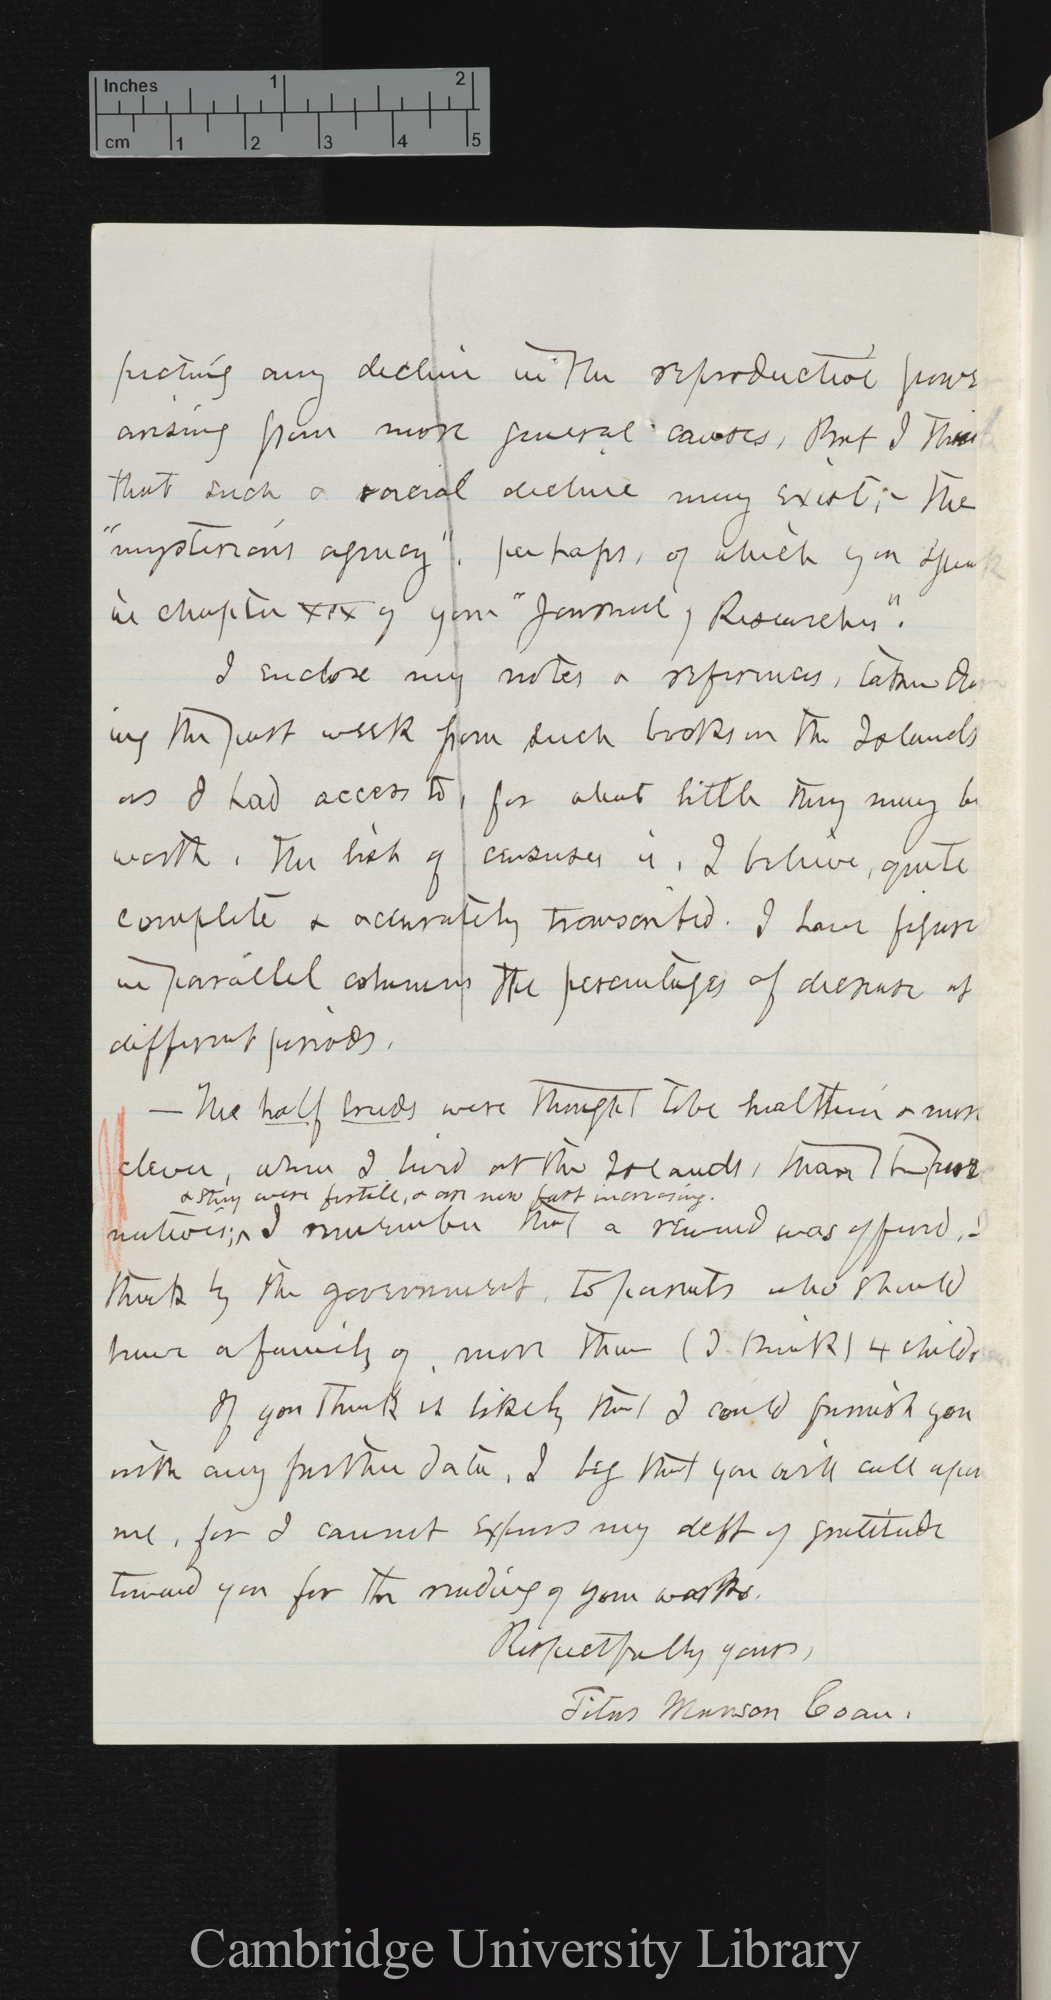 Inches 1 2
cm 1 2 3 4 5
pecting any decline in the reproductive powe
arising from more general causes, But I think
that such a racial decline may exist;- the
"mysterious agency", perhaps, of which you speak
in chapter XIX of your "Journal of Researches".
I enclose my notes & references, taken dur
ing the past week from such books on the Islands
as I had access to, for what little they may be
worth. The list of censuses is, I believe, quite
complete & accurately transcribed. I have figure
in parallel columns the percentages of decrease at
different periods.
— The half breeds were thought to be healthier & more
clever, when I lived at the Islands, than the pure
& they were fertile, & are now fast increasing.
natives; I remember that a reward was offered, I
think by the government, to parents who should
have a family of, more than (I think) 4 childr
If you think it likely that I could furnish you
with any further data, I beg that you will call upon
me, for I cannot express my debt of gratitude
toward you for the reading of your works.
Respectfully yours,
Titus Munson Coan.
Cambridge University Library